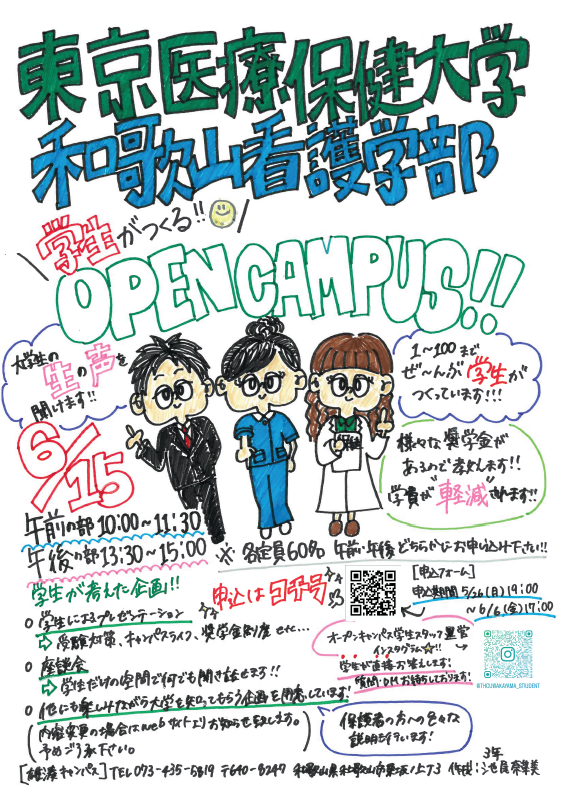 東京医療保健大学
和歌山看護学部
学生がつくる!!
OPEN CAMPUS!!
大学生の
生の声を
聞けます!!
1~100まで
ぜ~んぶ学生が
つくっています!!!
様々な奨学金が
あるので考えます!!
学費が"軽減"されます!!
6/15
午前の部 10:00~11:30
午後の部 13:30~15:00
※ 各定員60名 午前・午後どちらかにお申し込み下さい!!
学生が考えた企画!!
申込は二次元
[申込フォーム]
申込期間 5/26(月) 19:00
~6/6(金) 17:00
○ 学生によるプレゼンテーション
⇨ 受験対策、キャンパスライフ、奨学金制度 etc...
○ 座談会
⇨ 学生だけの空間で何でも聞き放せます!!
○ 他にも楽しみながら大学を知ってもらう企画を用意しています!
オープンキャンパス学生スタッフ運営
インスタグラム☆!!
学生が直接お答えします!
質問・DMお待ちしております!
@THCUWAKAYAMA_STUDENT
(内容変更の場合はwebサイトよりお知らせ致します。
予めご了承下さい。)
保護者の方への色々な
説明も行います!
[雄湊キャンパス] TEL 073-435-5819 〒640-8247 和歌山県和歌山市東坂ノ上丁3
3年
作成: